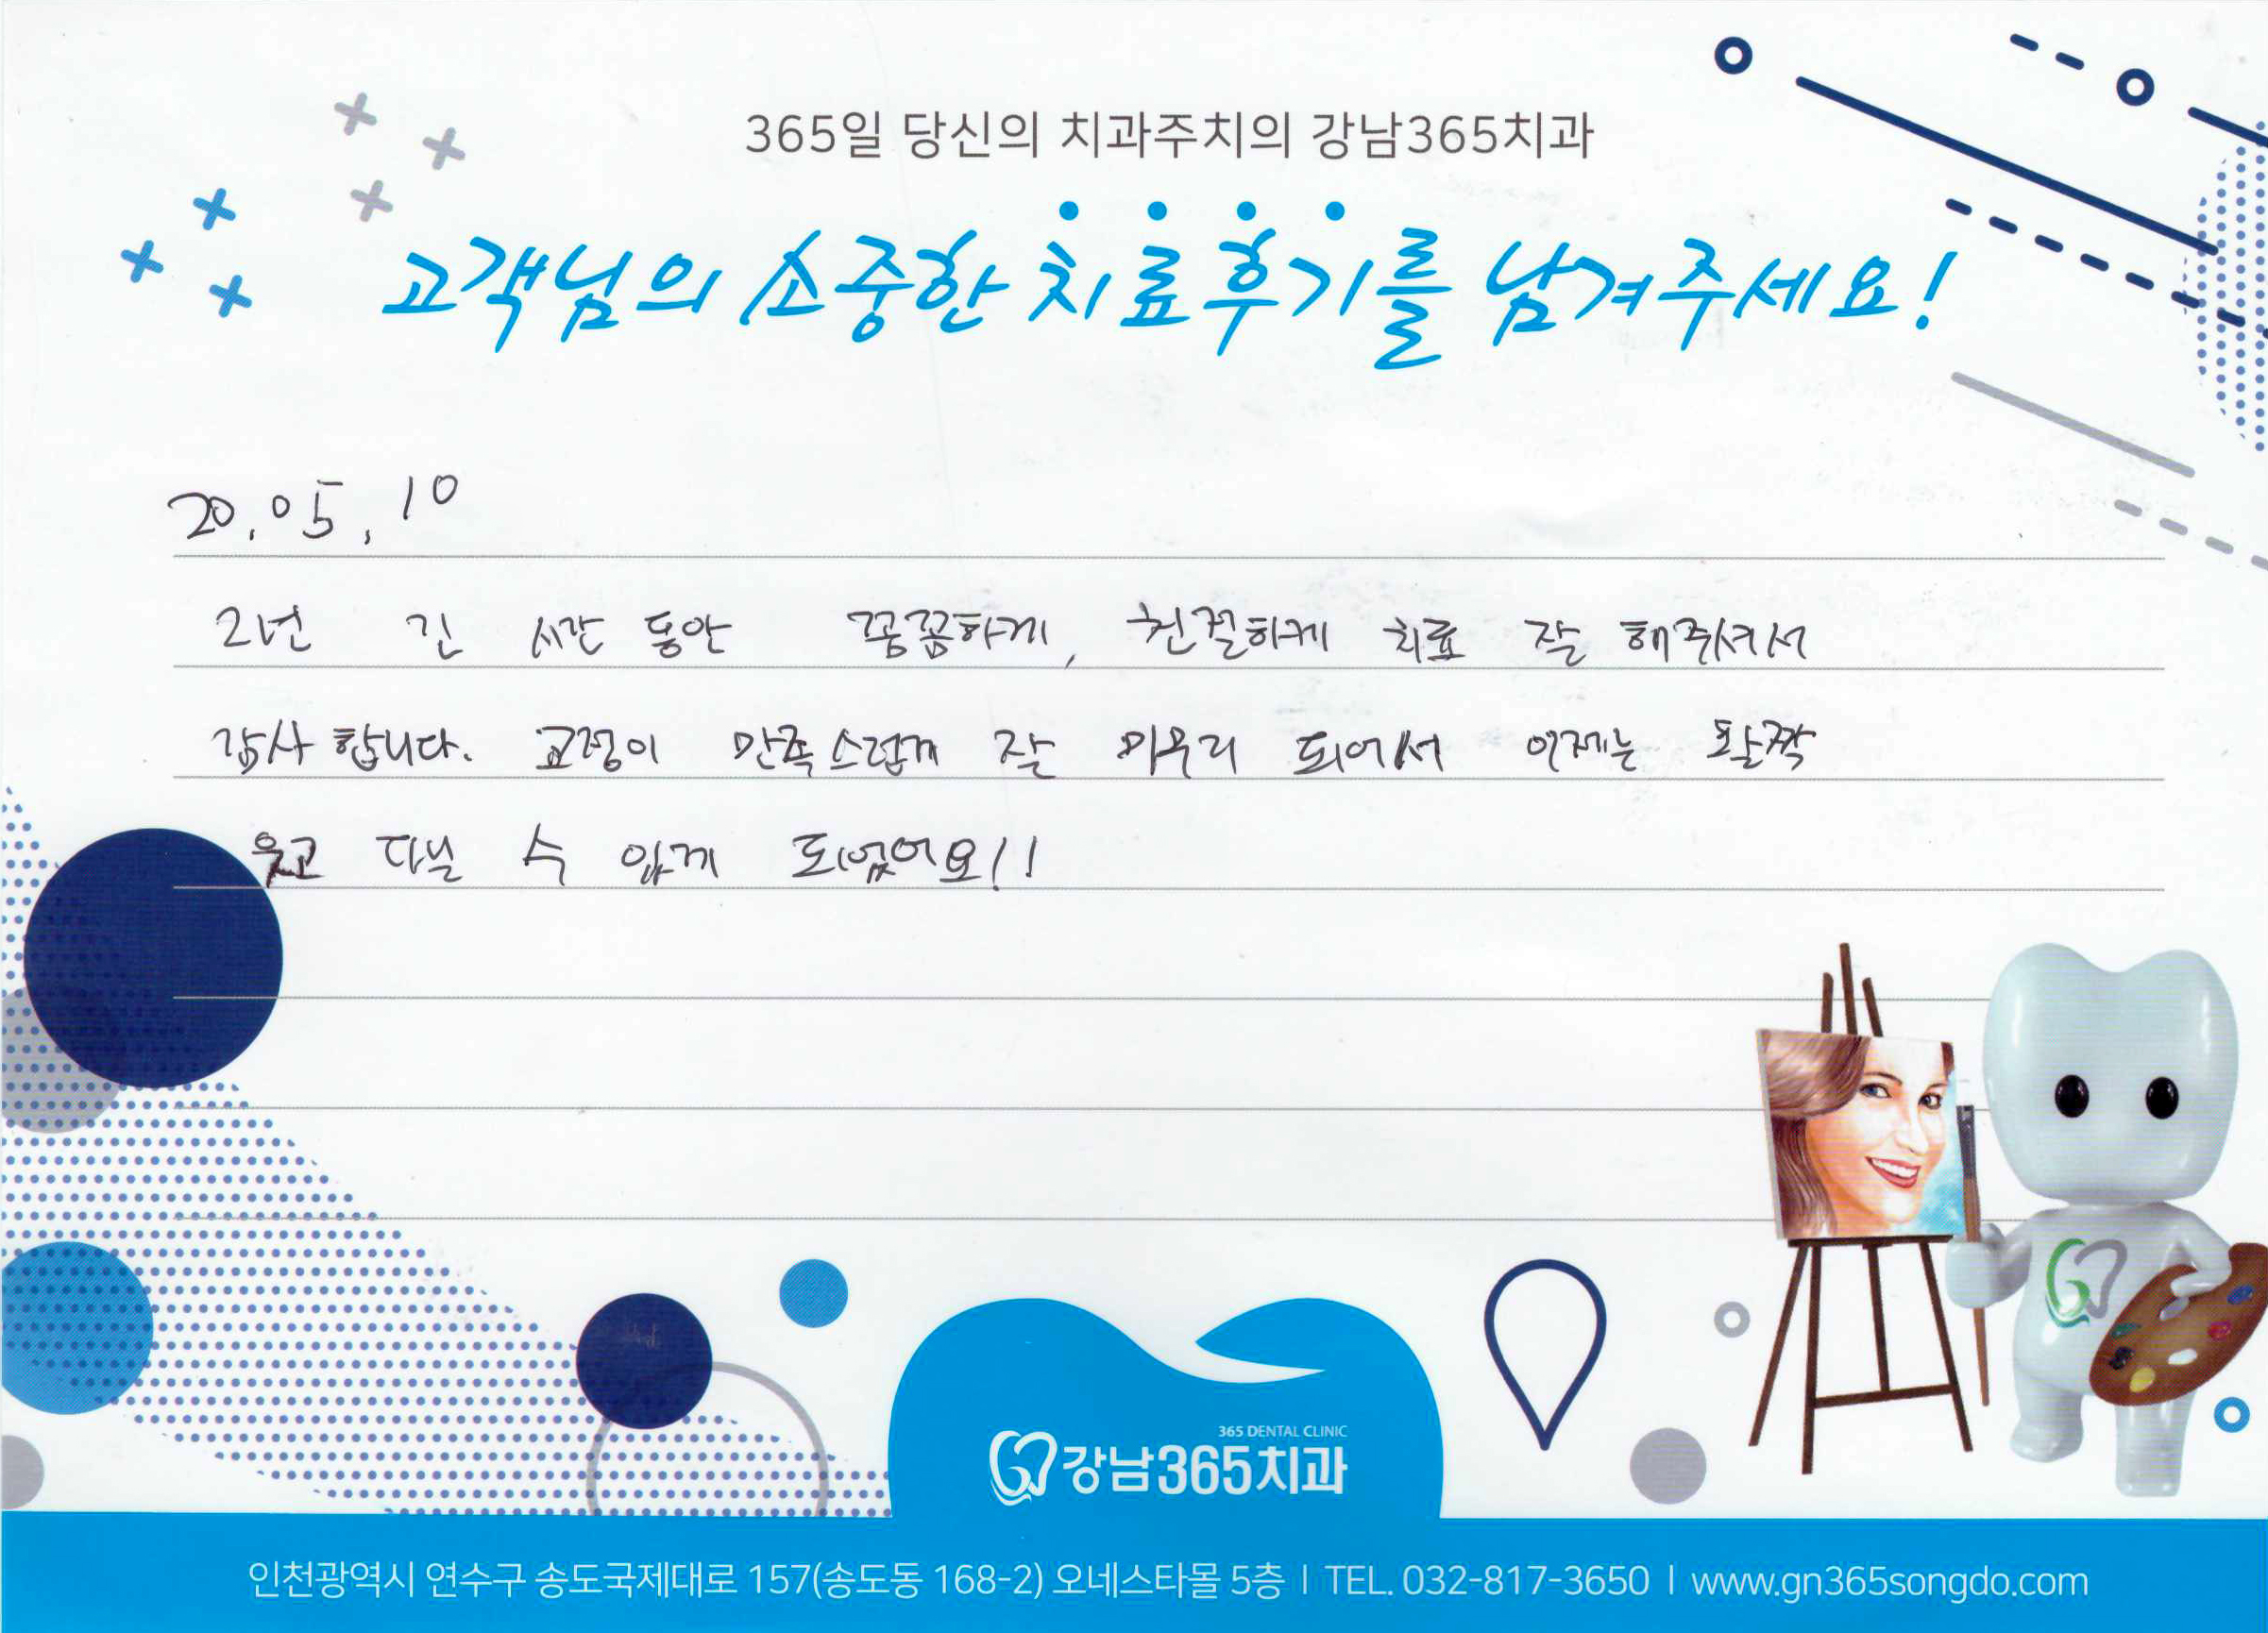 365일 당신의 치과주치의 강남365치과
고객님의 소중한 치료후기를 남겨주세요!
20.05.10
2년 긴 시간 동안 꼼꼼하게, 친절하게 치료 잘 해주셔서
감사합니다. 교정이 만족스럽게 잘 마무리 되어서 이제는 활짝
웃고 다닐 수 있게 되었어요!!
365 DENTAL CLINIC
강남365치과
인천광역시 연수구 송도국제대로 157(송도동 168-2) 오네스타몰 5층 | TEL. 032-817-3650 | www.gn365songdo.com